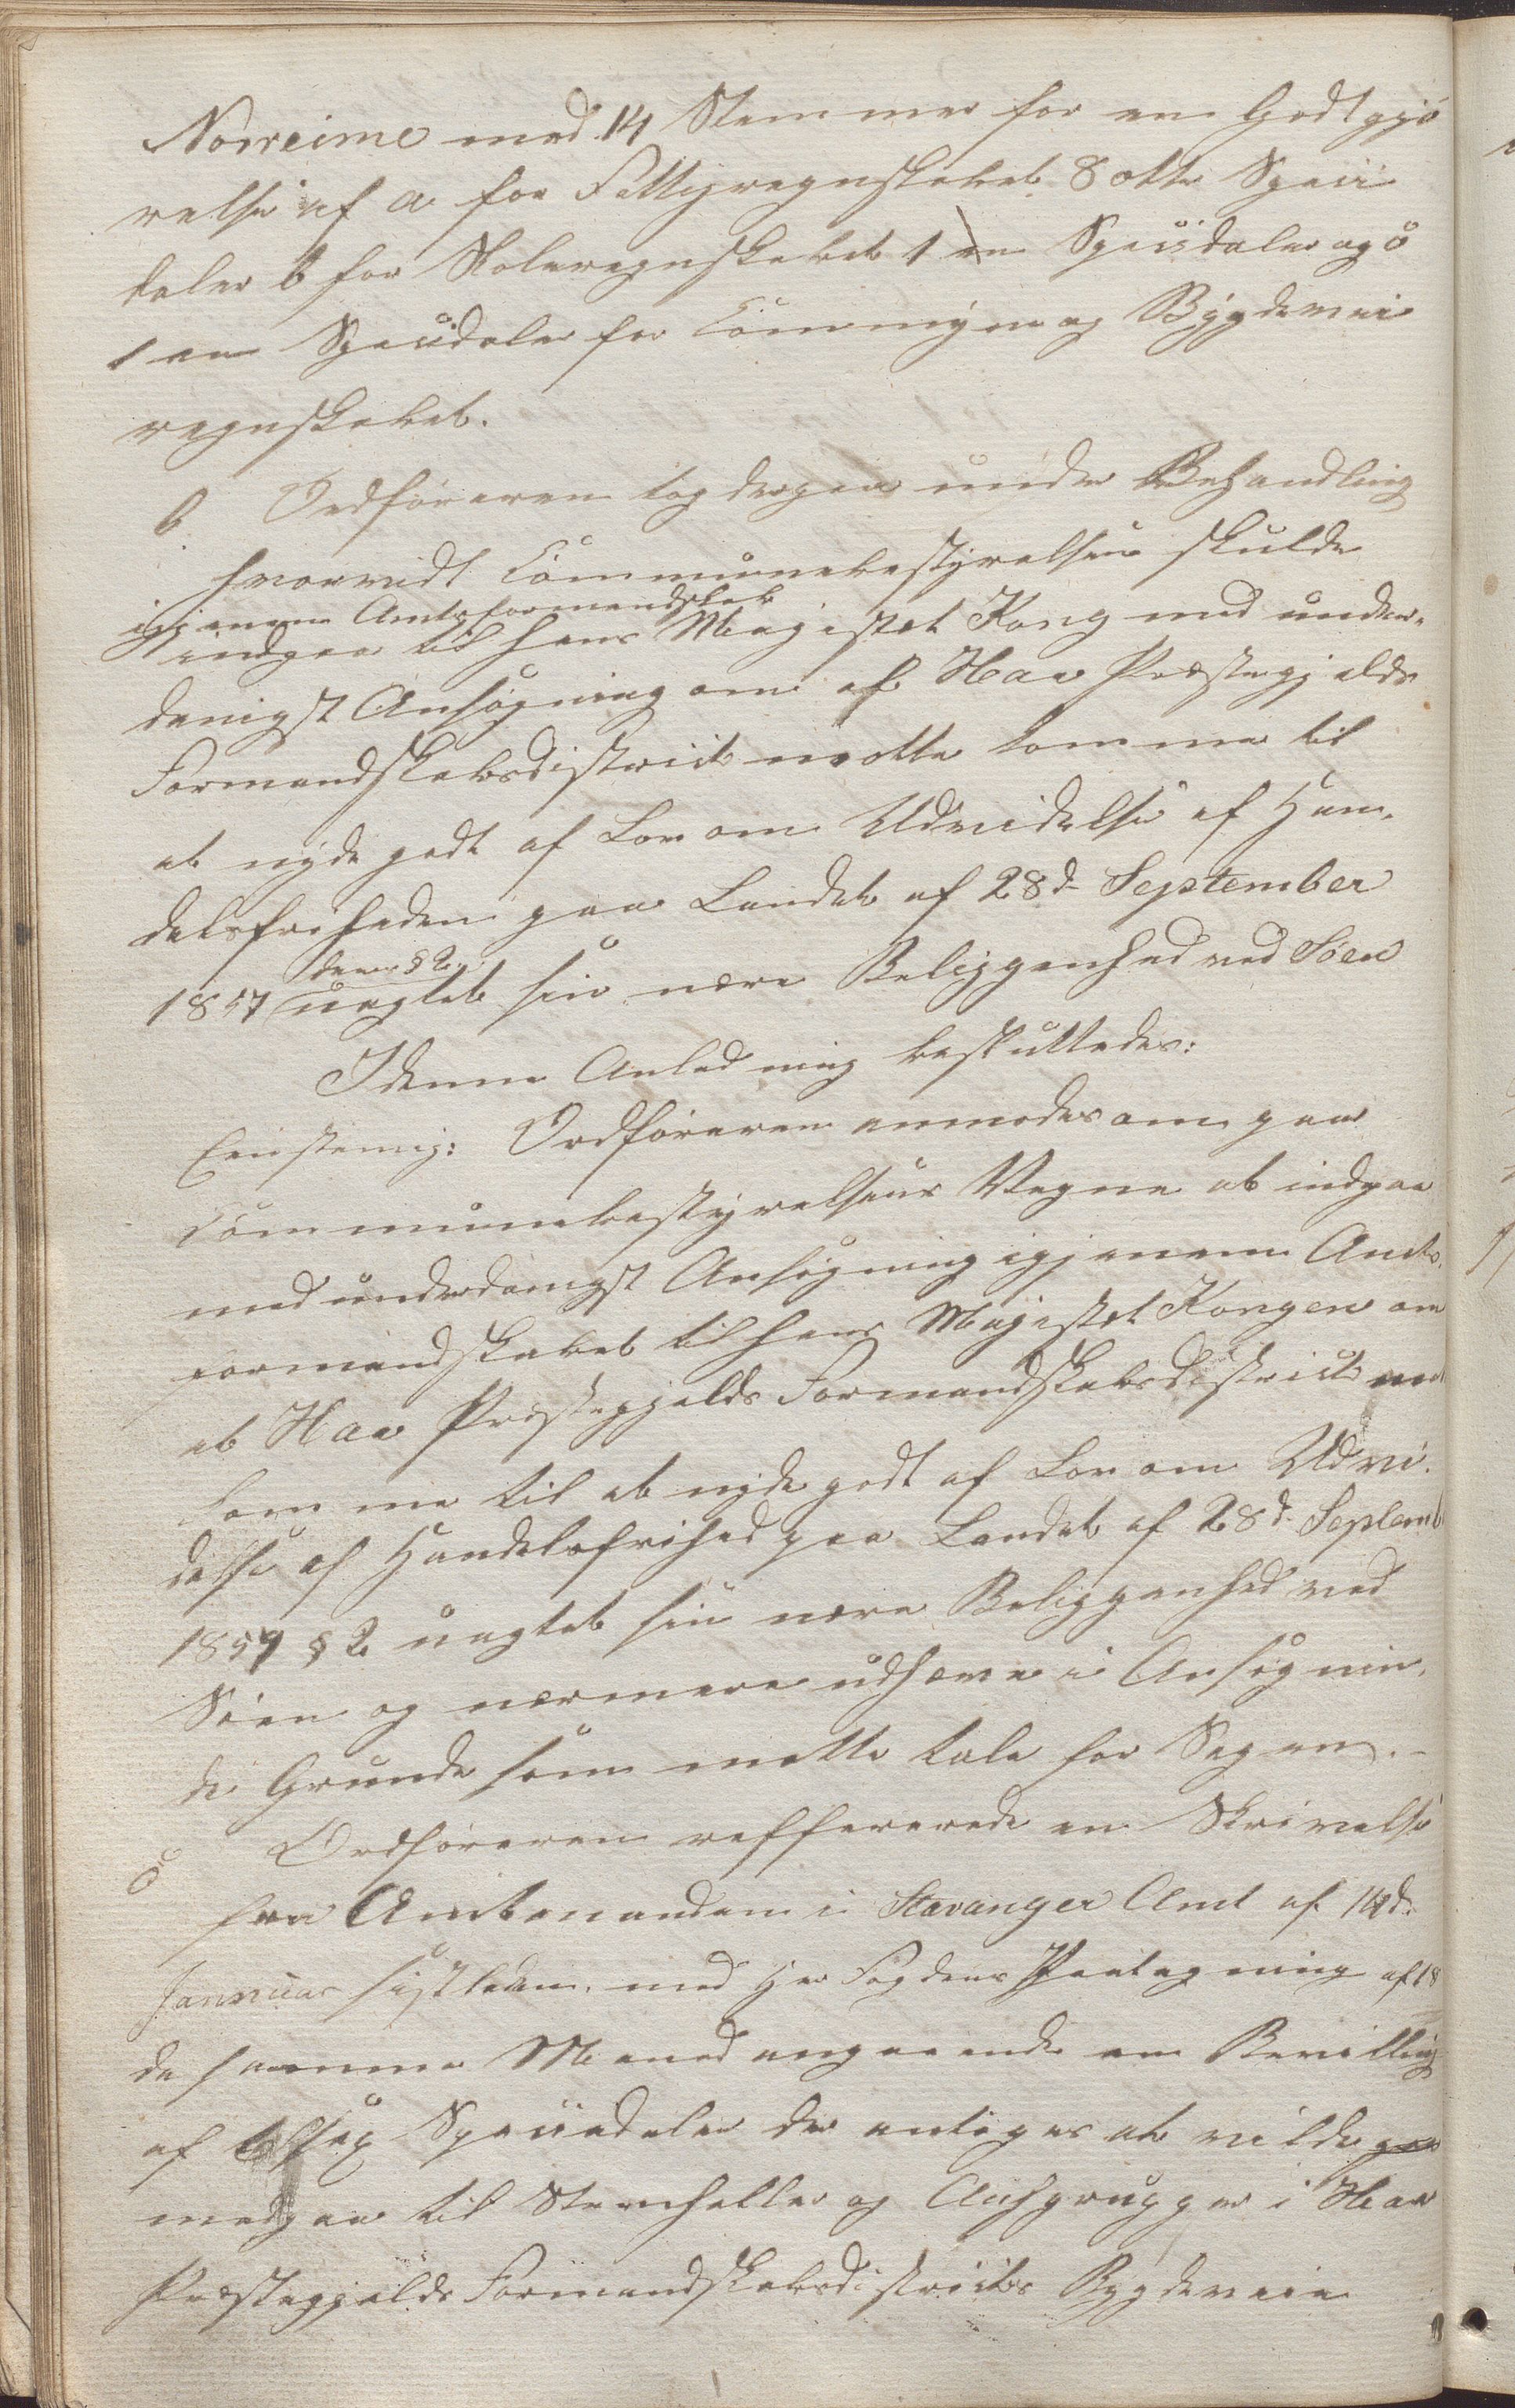 Norreime med 14 Stemmer for en Godtgjö
relse af a for Fattigregnskabet 8 otte Speci
daler b for Skoleregnskabet 1 en Speciidaler og c
1 en Speciidaler for Commune og Bygdevei
regnskabet.
b Ordföreren tog derpaa under Behandling
hvorvidt Communebestyrelsen skulde
igjennem Amtsformandskab
indgaa til hans Magistæt Kong med under-
danigst Ansøgning om at Haa Præstegjelds
Formandskabsdistrict maatte komme til
at nyde godt af Lov om Udvidelse af Han-
delsfriheden paa Landet af 28d September
dens § 2
1857 uagtet sin nære Beliggenhed ved Söen
I denne Anledning besluttedes:
Eenstemig: Ordföreren anmodes om paa
Communebestyrelsens Vegne at indgaa
med underdanigst Ansøgning igjennem Amts-
formandskabet til hans Majestæt Kongen om
at Haa Præstegjelds Formandskabsdistrict maa
komme til at nyde godt af Lov om Udvi-
delse af Handelsfrihed paa Landet af 28d Septemb
1857 § 2 uagtet sin nære Beliggenhed ved
Söen og nærmere udhæve i Ansøgnin.
de Grunde som maatte tale for Sagen.-
c Ordföreren reffererede en Skrivelse
fra Amtmanden i Stavanger Amt af 14d
Jannuar sistleden. med Hr Fogdens Paategning af 18
de samme Maaned angaaende en Bevilling
af sex Speciedaler der antages at vilde gaa
medgaa til Steenheller og i Haa
Præstegjelds Formandskabsdistricts Bygdeveie